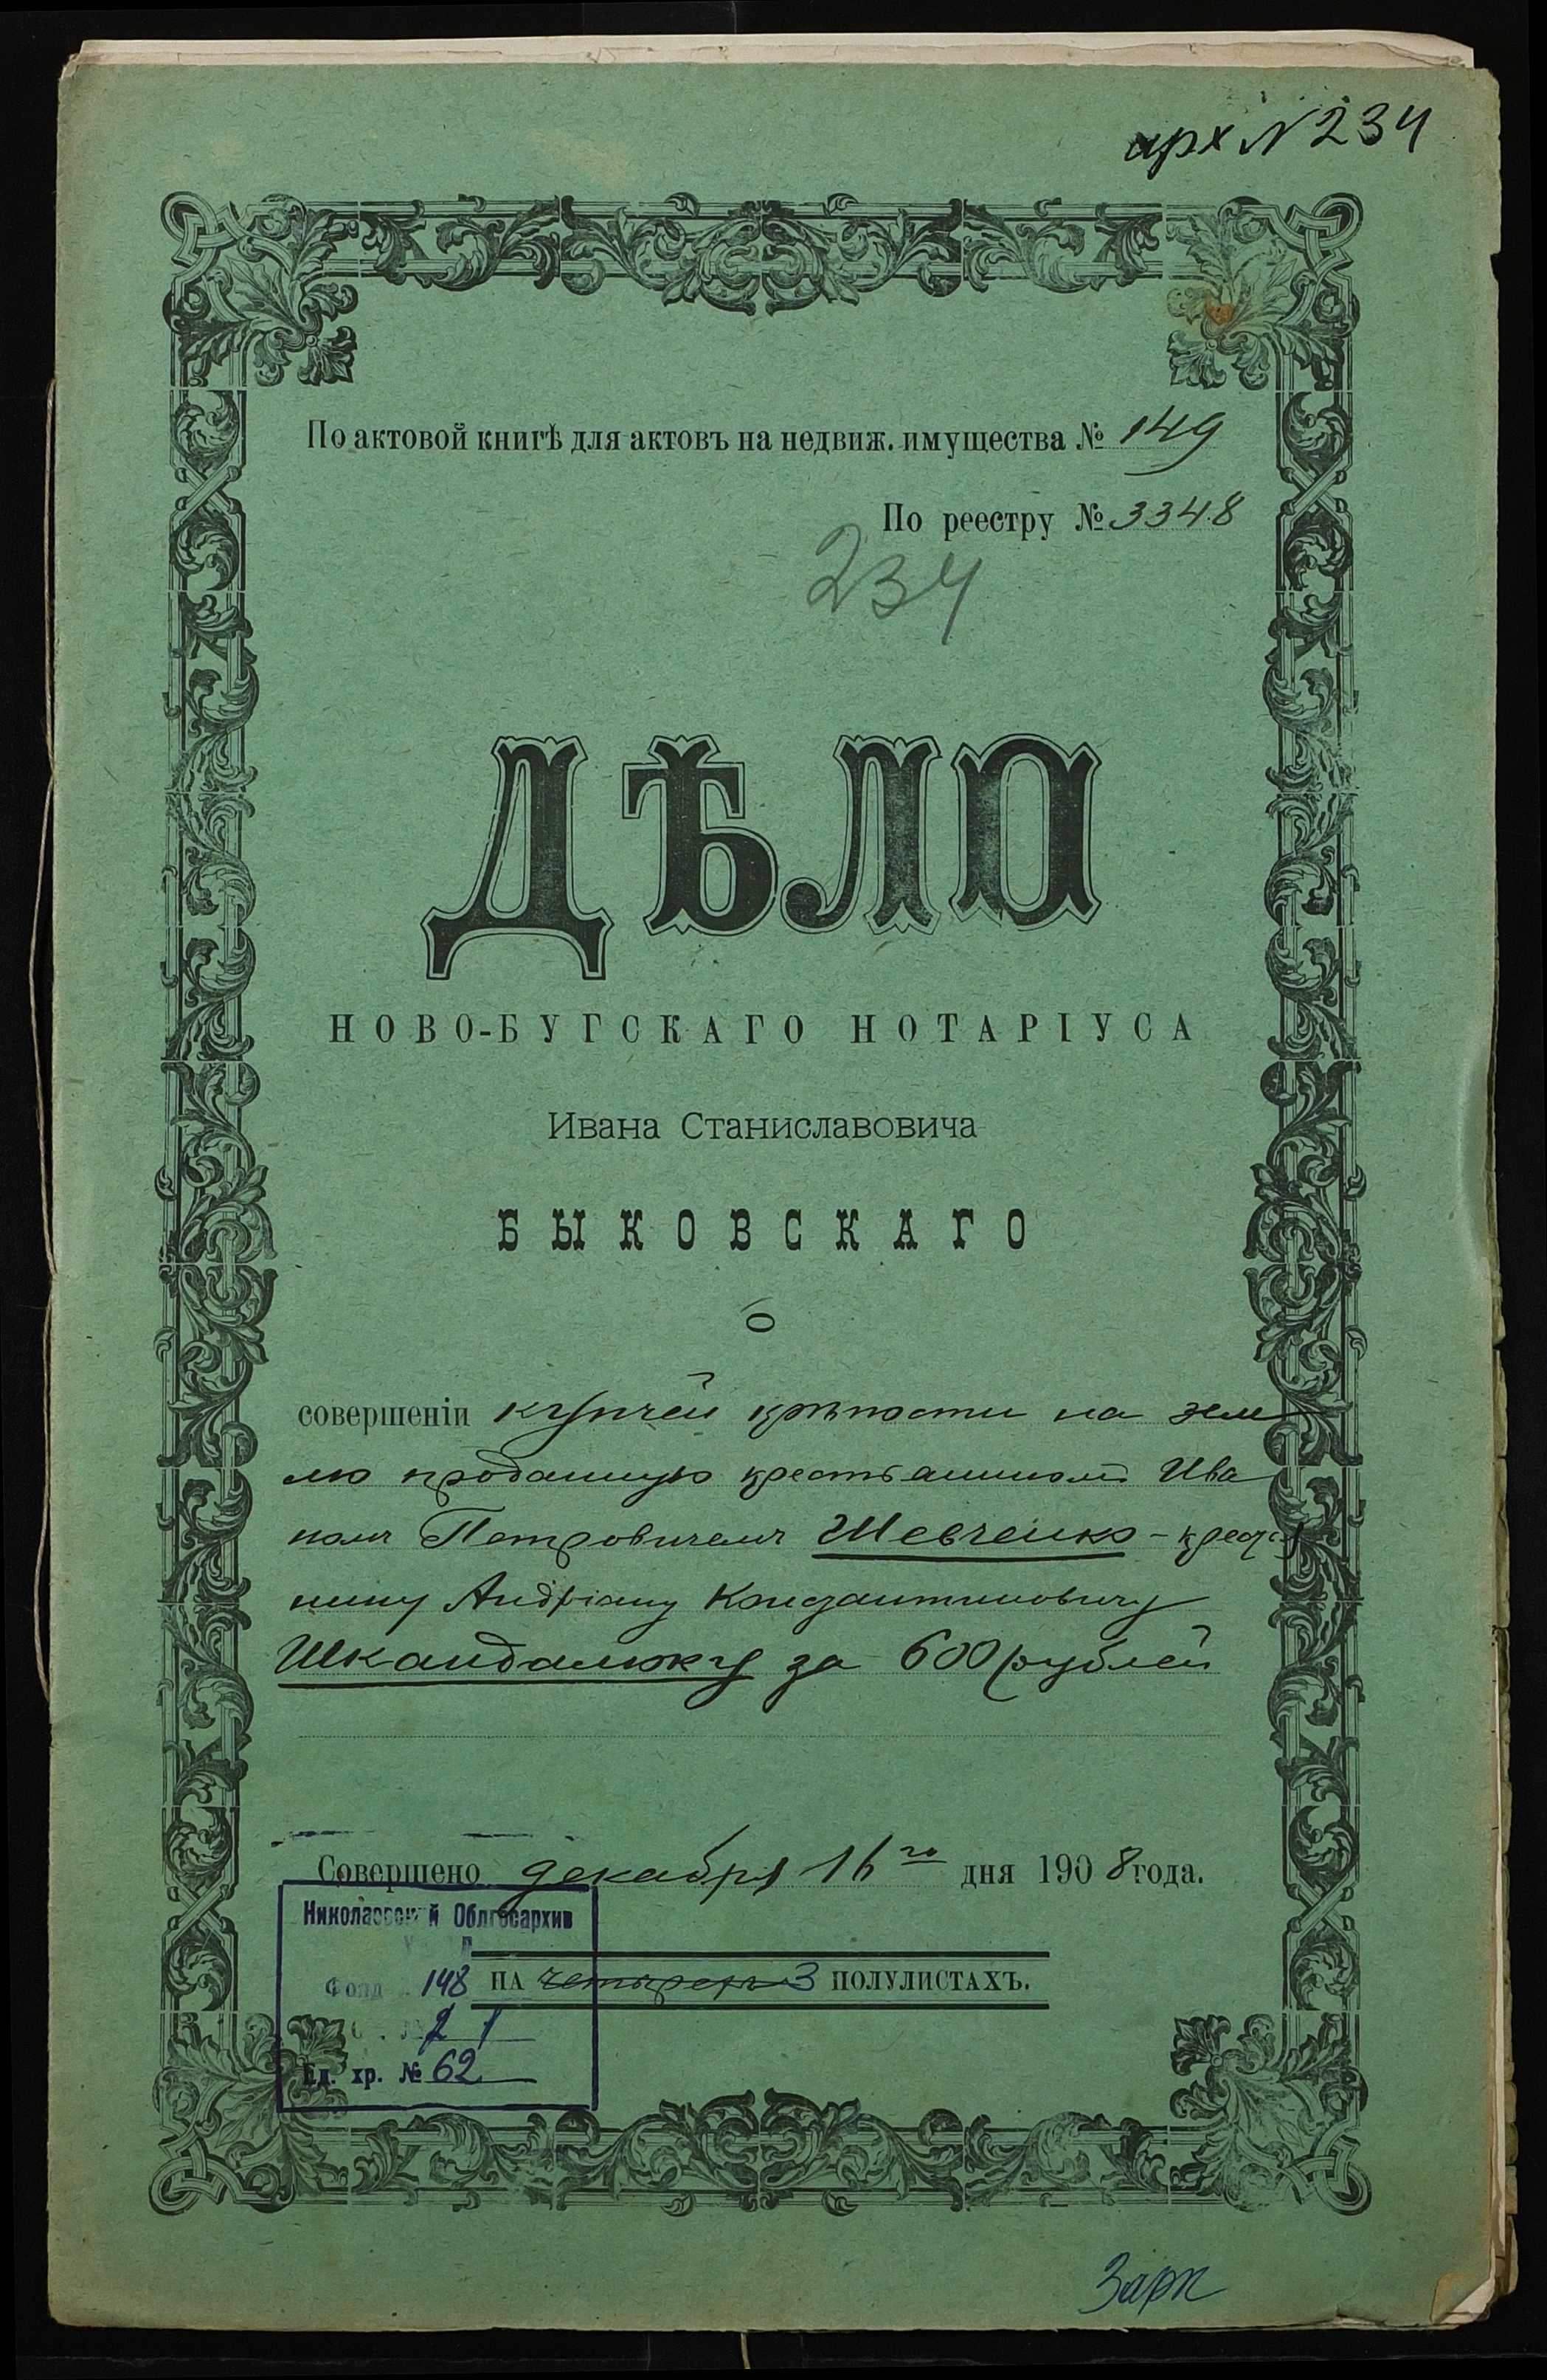 арх N 234
По актовой книгѣ для актовъ на недвиж. имущества № 149
По реестру № 3348
234
ДѢЛО
НОВО-БУГСКАГО НОТАРІУСА
Ивана Станиславовича
БЫКОВСКАГО
О
совершеніи купчей крѣпости на зем
лю проданную крестьяниномъ Ива
номъ Петровичемъ Шевченко - крестья
нину Андріану Константиновичу
Шкандалюку за 600 рублей
Совершено декабря 16го дня 1908 года.
Николаевский Облгосархив
Фонд 148
НА четырехъ 3 ПОЛУЛИСТАХЪ.
1
Ед. хр. № 62